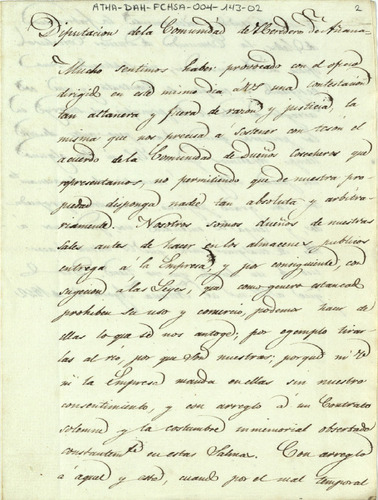 ATHA-DAH-FCHSA-004-143-02
2
Diputacion de la Comunidad de Herederos de Añana
Mucho sentimos haber provocado con el oficio
dirigido en este mismo dia á VS una contestación
tan altanera y fuera de razón y justicia, la
misma que nos precisa a sostener con tesón el
acuerdo de la Comunidad de dueños cosecheros que
representamos, no permitiendo que de nuestra pro
piedad disponga nadie tan absoluta y arbitra-
riamente. Nosotros somos dueños de nuestras
sales antes de hacer en los almacenes publicos
entrega á la Empresa, y por consiguiente, con
sugecion á las Leyes, que como genero estancado
prohiben su uso y comercio, podemos hacer de
ellas lo que se nos antoge; por egemplo tirar
las al rio, por que son nuestras; porque ni
ni la Empresa manda en ellas sin nuestro
consentimiento, y con arreglo á un Contrato
solemne y la costumbre inmemorial observada
constantemte en estas Salinas. Con arreglo
á aquel y esta, cuando por el mal temporal